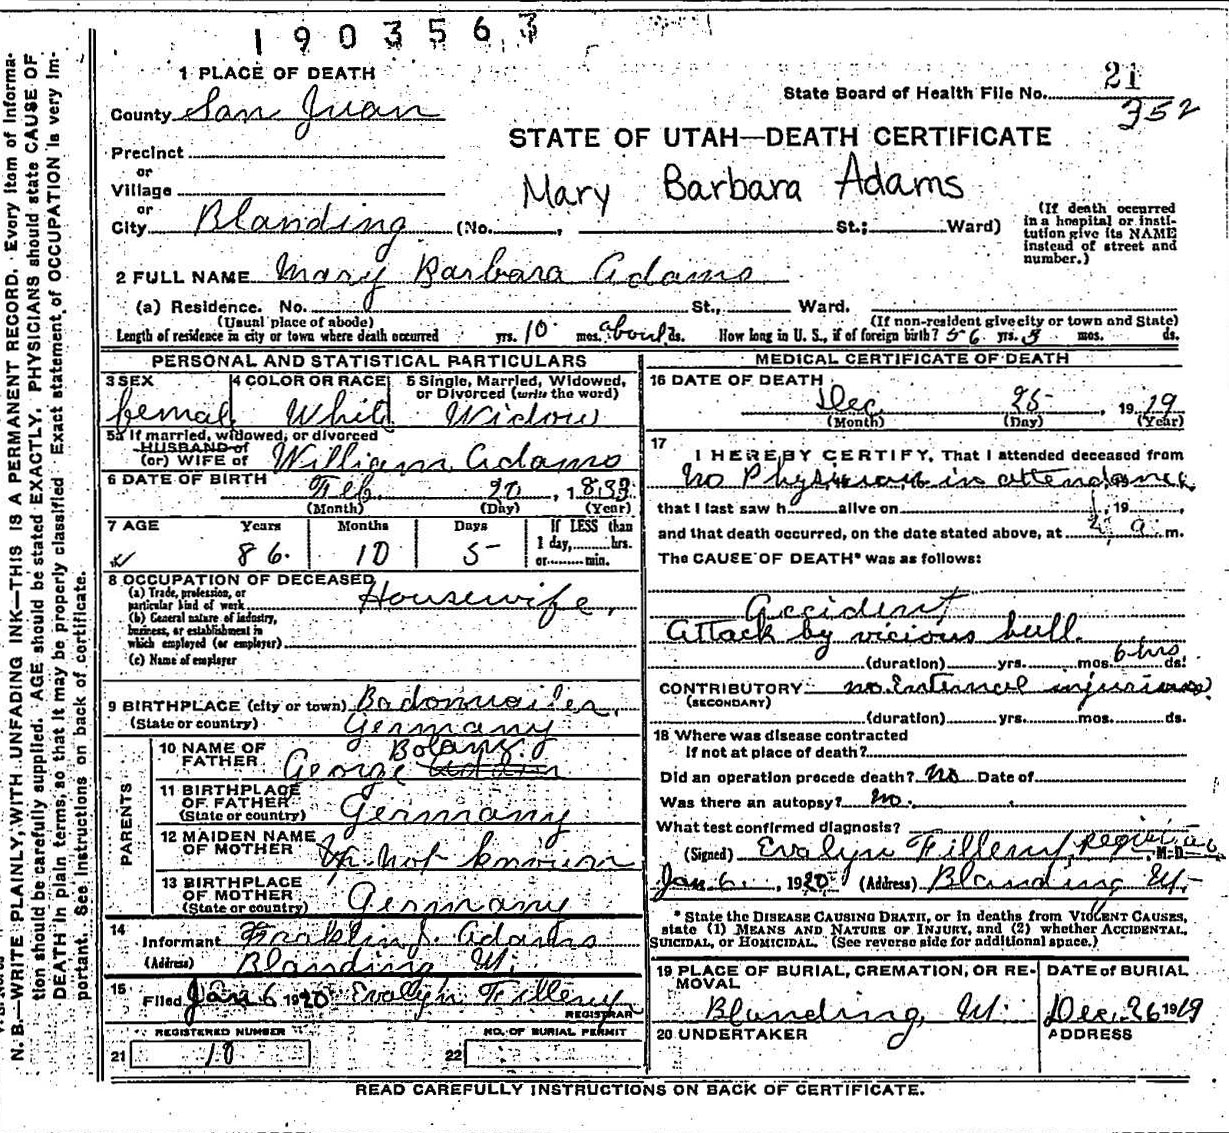 1903563
1 PLACE OF DEATH
State Board of Health File No. 21
352
County San Juan
STATE OF UTAH—DEATH CERTIFICATE
Precinct
or
Village
Mary Barbara Adams
or
City Blanding (No. , St.; Ward)
(If death occurred in a hospital or insti-
tution give its NAME
instead of street and
number.)
2 FULL NAME Mary Barbara Adams
(a) Residence. No. St., Ward.
(Usual place of abode) (If non-resident give city or town and State)
Length of residence in city or town where death occurred yrs. 10 mos. about ds. How long in U. S., if of foreign birth? 56 yrs. 5 mos. ds.
PERSONAL AND STATISTICAL PARTICULARS
3 SEX
femal
4 COLOR OR RACE
White
5 Single, Married, Widowed,
or Divorced (write the word)
Widow
5a If married, widowed, or divorced
HUSBAND of
(or) WIFE of William Adams
6 DATE OF BIRTH Feb. 20, 1833
(Month) (Day) (Year)
7 AGE Years Months Days If LESS than
1 day, hrs.
or min.
86. 10 5
8 OCCUPATION OF DECEASED
(a) Trade, profession, or
particular kind of work Housewife.
(b) General nature of industry,
business, or establishment in
which employed (or employer)
(c) Name of employer
9 BIRTHPLACE (city or town)
(State or country) Germany
10 NAME OF
FATHER George Bolanz
11 BIRTHPLACE
OF FATHER
(State or country) Germany
12 MAIDEN NAME
OF MOTHER not known
13 BIRTHPLACE
OF MOTHER
(State or country) Germany
PARENTS
14 Informant Franklin J. Adams
(Address) Blanding Ut.
15 Filed Jan 6 1920 Evalyn Fillerup
REGISTRAR
REGISTERED NUMBER NO. OF BURIAL PERMIT
21 10 22
MEDICAL CERTIFICATE OF DEATH
16 DATE OF DEATH
Dec. 25, 1919
(Month) (Day) (Year)
17 I HEREBY CERTIFY, That I attended deceased from
No Physician in attendance
that I last saw h alive on , 19 ,
and that death occurred, on the date stated above, at 2 a. m.
The CAUSE OF DEATH* was as follows:
Accident
Attack by vicious bull.
(duration) yrs. mos. 6 hrs ds.
CONTRIBUTORY no. Internal injuries
(SECONDARY)
(duration) yrs. mos. ds.
18 Where was disease contracted
If not at place of death?
Did an operation precede death? No Date of
Was there an autopsy? No.
What test confirmed diagnosis?
(Signed) Evalyn Fillerup, Registrar M. D.
Jan 6., 1920 (Address) Blanding Ut.
* State the DISEASE CAUSING DEATH, or in deaths from VIOLENT CAUSES,
state (1) MEANS AND NATURE OF INJURY, and (2) whether ACCIDENTAL,
SUICIDAL, or HOMICIDAL. (See reverse side for additional space.)
19 PLACE OF BURIAL, CREMATION, OR RE-
MOVAL
Blanding, Ut.
DATE of BURIAL
Dec. 26 1919
20 UNDERTAKER
ADDRESS
READ CAREFULLY INSTRUCTIONS ON BACK OF CERTIFICATE.
N. B.—WRITE PLAINLY, WITH UNFADING INK—THIS IS A PERMANENT RECORD. Every item of Informa-
tion should be carefully supplied. AGE should be stated EXACTLY. PHYSICIANS should state CAUSE OF
DEATH in plain terms, so that it may be properly classified. Exact statement of OCCUPATION is very im-
portant. See instructions on back of certificate.